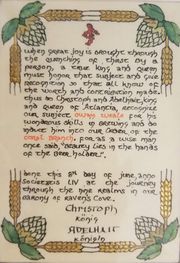 When great joy is brought through
the quenching of thirst by a
person, a true king and queen
must honor that subject and give
recognition so that all know of
the worth and contribution made.
thus do Christoph and Adelhait, king
and queen of Atlantia, recognize
our subject owyn
for his
wondrous skills in brewing and do
induct him into our order of the
coral branch, for as a wise man
once said, "Beauty lies in the hands
of the beer holder."
done this 8th day of june, anno
societatis LIV at the journey
through the nine realms in our
barony of raven's cove.
Christoph
könig
Adelhait
königin